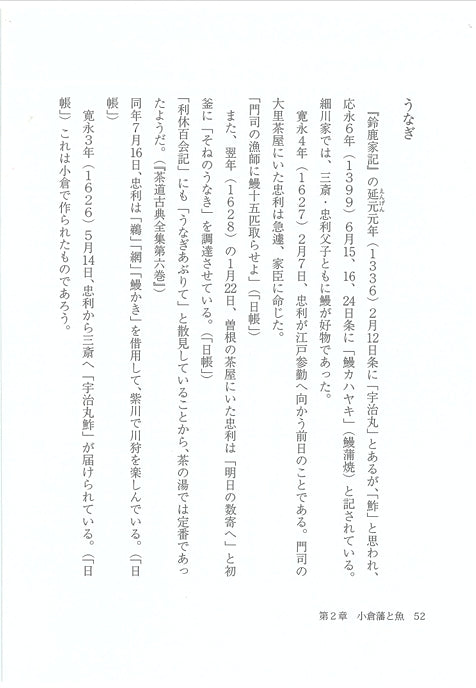 うなぎ
『鈴鹿家記』の延元元年（１３３６）２月12日条に「宇治丸」とあるが、「鮓」と思われ、
えんげん
応永６年（１３９９）６月15、16、24日条に「鰻カハヤキ」（鰻蒲焼）と記されている。
細川家では、三斎・忠利父子ともに鰻が好物であった。
寛永４年（１６２７）２月７日、忠利が江戸参勤へ向かう前日のことである。門司の
大里茶屋にいた忠利は急遽、家臣に命じた。
「門司の漁師に鰻十五匹取らせよ」（「日帳」）
また、翌年（１６２８）の１月22日、曽根の茶屋にいた忠利は「明日の数寄へ」と初
釜に「そねのうなき」を調達させている。（「日帳」）
「利休百会記」にも「うなぎあぶりて」と散見していることから、茶の湯では定番であっ
たようだ。（『茶道古典全集第六巻』）
同年７月16日、忠利は「鵜」「網」「鰻かき」を借用して、紫川で川狩を楽しんでいる。（「日
帳」）
寛永３年（１６２６）５月14日、忠利から三斎へ「宇治丸鮓」が届けられている。（「日
帳」）これは小倉で作られたものであろう。
第２章　小倉藩と魚　52